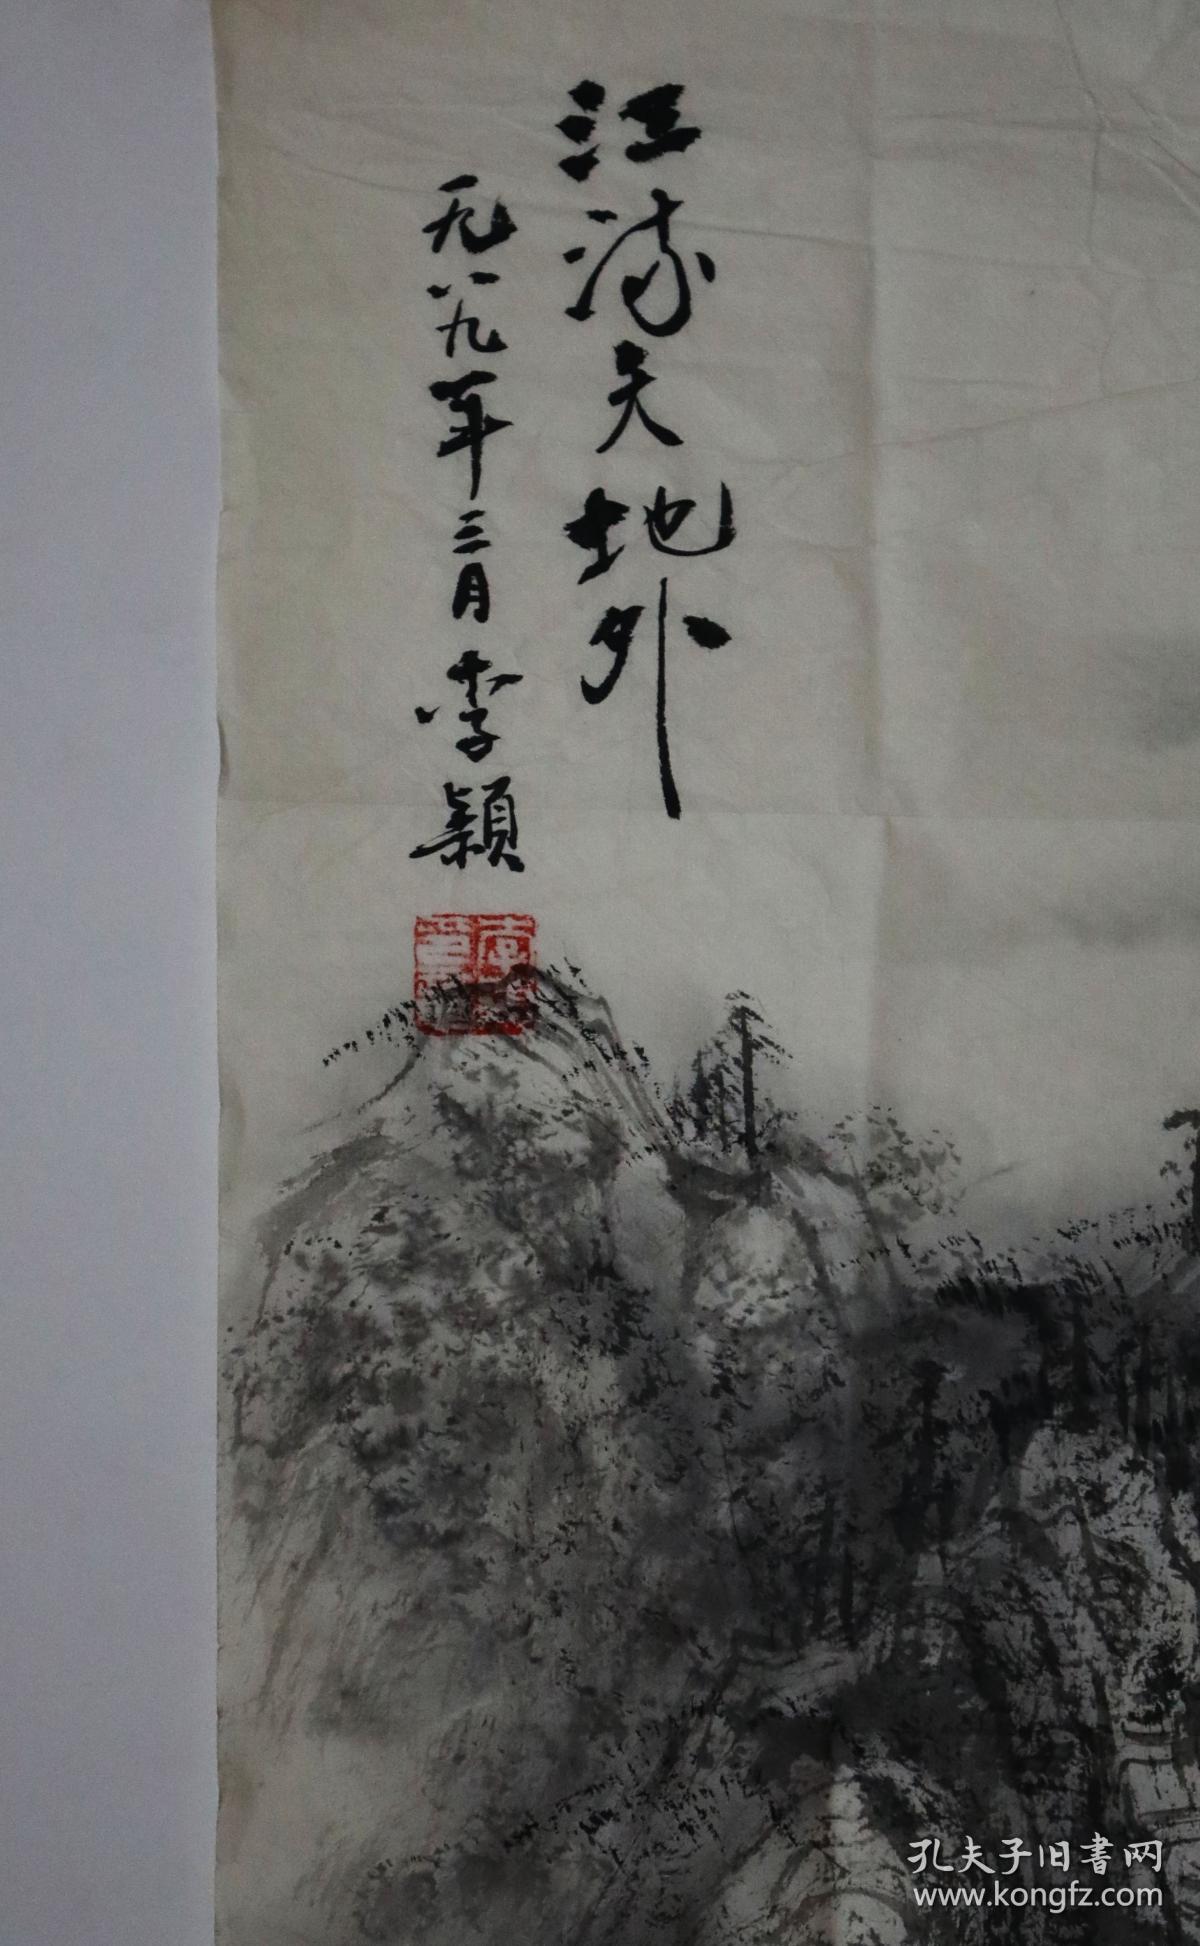 江流天地外
一九八九年三月李穎
孔夫子旧書网
www.kongfz.com